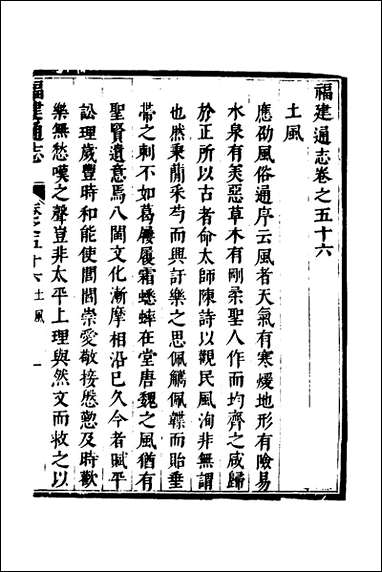 福建通志卷之五十六
土風
應劭風俗通序云風者天氣有寒煖地形有險易
水泉有美惡草木有剛柔聖人作而均齊之咸歸
於正所以古者命太師陳詩以觀民風洵非無謂
也然秉蕑采芍而興訏樂之思佩觿佩韘而貽垂
帶之刺不如葛屨履霜蟋蟀在堂唐魏之風猶有
聖賢遺意焉八閩文化漸摩相沿已久今者賦平
訟理歲豐時和能使閭閻崇愛敬接慇懃及時歡
樂無愁嘆之聲豈非太平上理與然文而救之以
福建通志
卷之五十六
土風
一